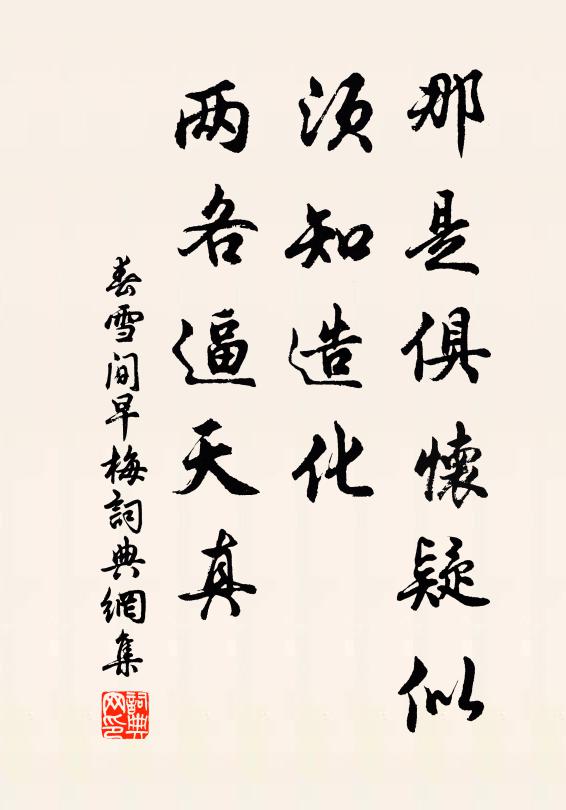 那是俱懷疑似
须知造化
两各逼天真
春雪间早梅詞典網集
詞典
网印